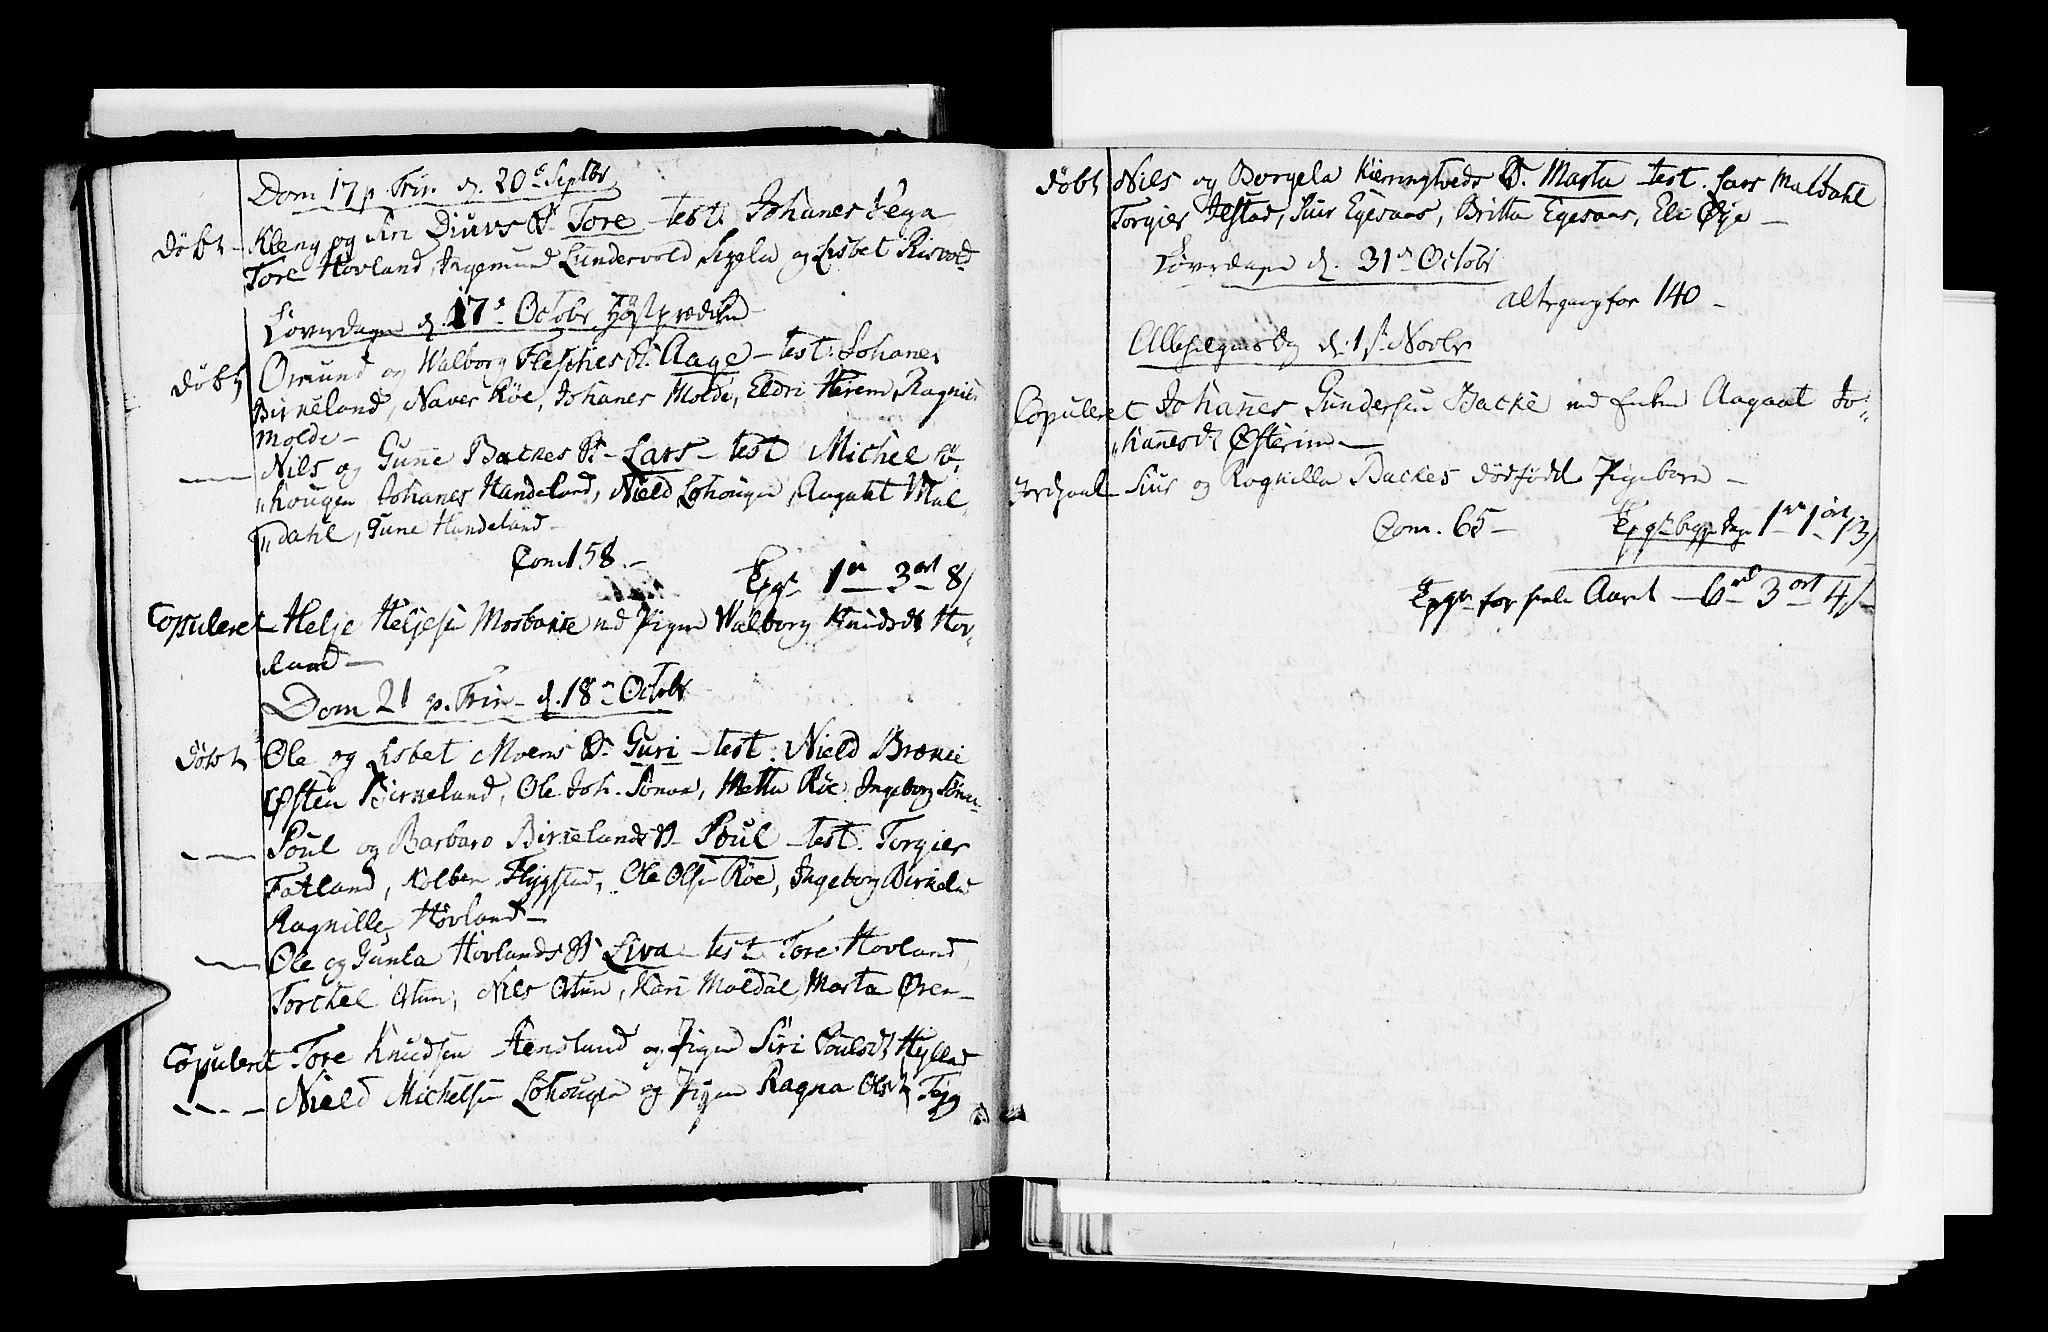 Dom 17 p. Trin. d. 20de Septbr
Døbt – Kleng og Siri Diuvs B. Tore – test: Johanes Vega
Tore Hovland, Ingemund Lundevold, Segela og Lisbet Risvold
Løverdagen d. 17de Octobr Høstprædiken
Døbt Omund og Walborg Fleskes B. Aage – test: Johanes
Birkeland, Naver Röe, Johanes Molde, Eldri Herem, Ragnil
Molde –
— Nils og Gune Backes B. – Lars – test Michel Lo-
"hougen Johanes Handeland, Nield Lohougen, Aagaat Mul
"dahl, Gune Handeland –
Com. 158. –
Expr 1 rd – 3 ort 8 /
Copuleret – Helje Heljesen Mosbakke med Pigen Walborg Knudsdt Hov-
land –
Dom 21 p. Trin – d. 18de Octobr
Døbt Ole og Lisbet Moens B. Guri – test: Nield Brække
Østen Birkeland, Ole Joh. Sönnä, Metta Röe, Ingeborg Sönnä
— Poul og Barbaro Birkelands B – Poul – test. Torgier
Fatland, Kolben Flygstad, Ole Olsen Röe, Ingeborg Birkeld
Ragnille Hovland –
— Ole og Gunla Hovlands B. Siva – test Tore Hovland,
Torchel Østun, Nils Østun, Kari Moldal, Marta Øren –
Copuleret Tore Knudsen Aensland og Pigen Siri Poulsdt Hylled
— Nield Michelsen Lohougen og Pigen Ragna Olsdt Teig
Døbt Nils og Borgela Kierringtveds B. Marta – test. Lars Muldahl
Torgier Jelstad, Siur Egesaas, Britta Egesaas, Eli Øye –
Løverdagen d. 31de Octobr
Altergangfor 140 –
Allehelgens Dag d. 1ste Novbr
Copuleret Johannes Gundersen Backe med Enken Aagaat Jo-
"hannesdt Østerim –
Jordpaak Siur og Ragnilla Backes dødfødt Pigebarn –
Com. 65 – Expr begge Dage 1 rd – 1 ort – 13 /
Expr for hele Aaret – 6 rd 3 ort 4 / –